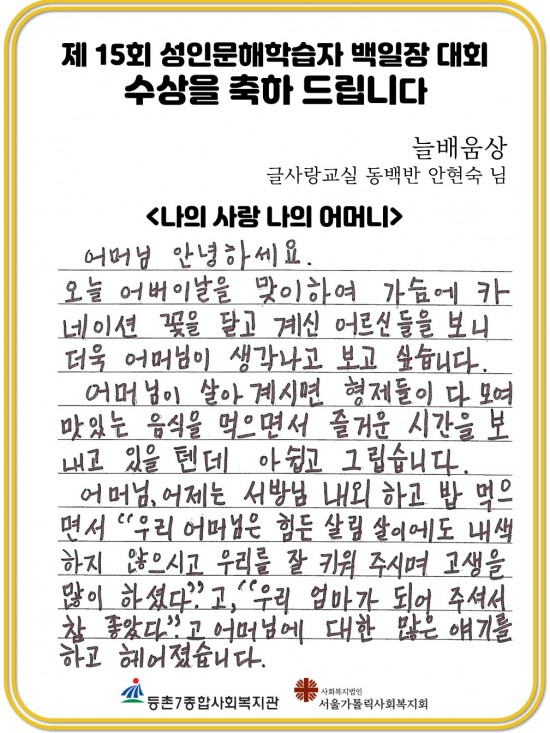 제 15회 성인문해학습자 백일장 대회
수상을 축하 드립니다
늘배움상
글사랑교실 동백반 안현숙 님
<나의 사랑 나의 어머니>
어머님 안녕하세요.
오늘 어버이날을 맞이하여 가슴에 카
네이션 꽃을 달고 계신 어르신들을 보니
더욱 어머님이 생각나고 보고 싶습니다.
어머님이 살아 계시면 형제들이 다 모여
맛있는 음식을 먹으면서 즐거운 시간을 보
내고 있을 텐데 아쉽고 그립습니다.
어머님, 어제는 서방님 내외 하고 밥 먹으
면서 “우리 어머님은 힘든 살림 살이에도 내색
하지 않으시고 우리를 잘 키워 주시며 고생을
많이 하셨다.”고, “우리 엄마가 되어 주셔서
참 좋았다.”고 어머님에 대한 많은 얘기를
하고 헤어졌습니다.
등촌7종합사회복지관
사회복지법인
서울가톨릭사회복지회